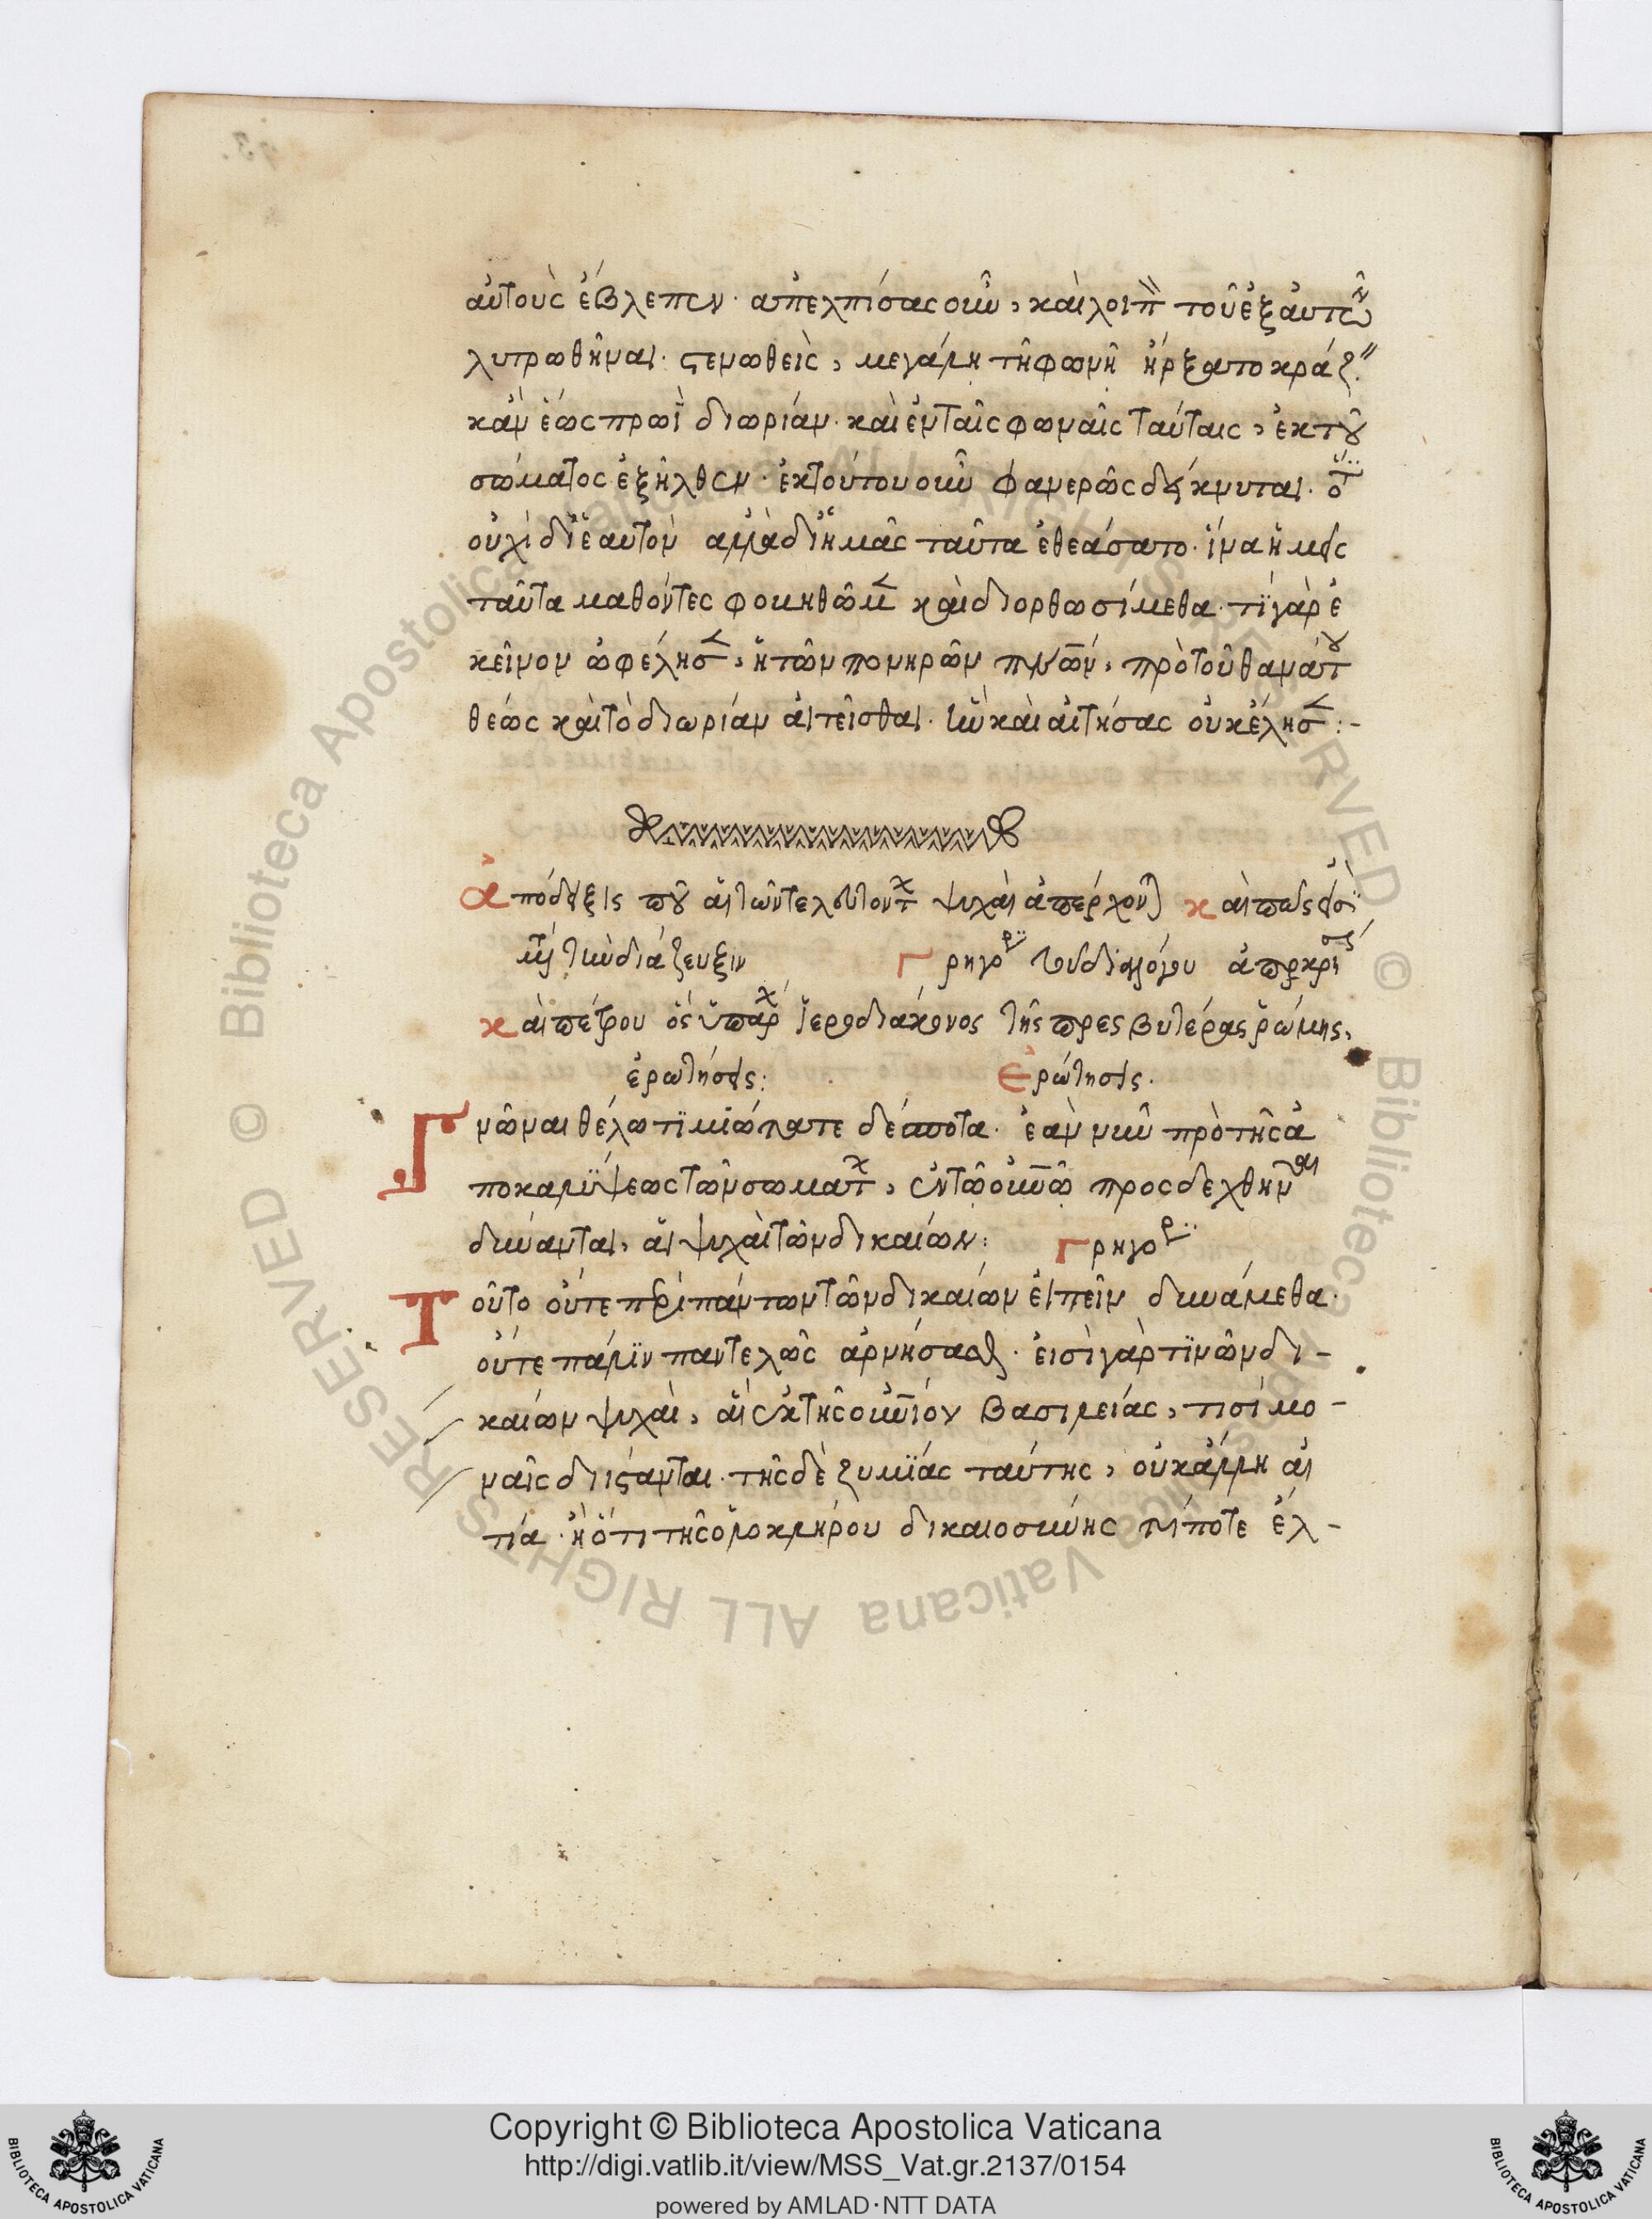 αὐτοὺς ἔβλεπεν· ἀπελπίσας οὖν, καὶ λοιπ τοῦ ἐξ αὐτῶν
λυτρωθῆναι· στενωθεὶς, μεγάλη τῆ φωνῆ ἤρξατο κράζ
κἂν ἕως πρωῒ διωρίαν· καὶ ἐν ταῖς φωναῖς ταύταις, ἐκ τοῦ
σώματος ἐξῆλθεν· ἐκ τούτου οὖν φανερῶς δείκνυται· ὅτ
οὐχὶ δι' ἑαυτὸν ἀλλὰ δι' ἡμᾶς ταῦτα ἐθεάσατο· ἵνα ἡμεῖς
ταῦτα μαθόντες φοβηθῶμ καὶ διορθωσόμεθα· τί γὰρ ἐ
κεῖνον ὠφέλησ, ἢ τῶν πονηρῶν πνων, πρὸ τοῦ θανάτου
θεως καὶ τὸ διωρίαν αἰτεῖσθαι· ἣν καὶ αἰτήσας οὐκ ἔλησ:-
Ἀπόδειξις ποῦ αἱ τῶν τελευτοντ ψυχαὶ ἀπέρχοντ καὶ πῶς εἰσὶ
μετὰ τὴν διάζευξιν Γρηγορ τοῦ διαλόγου ἀποκρι
καὶ πέτρου ὃς ὑπάρχ ἱεροδιάκονος τῆς πρεσβυτέρας ῥώμης,
ἐρωτήσεις: Ἐρώτησις.
Γνῶναι θέλω τιμιώτατε δέσποτα· ἐὰν νῦν πρὸ τῆς ἀ
ποκαλύψεως τῶν σωματ, ἐν τῶ οὐνῶ προσδεχθῆναι
δύνανται, αἱ ψυχαὶ τῶν δικαίων: Γρηγορ
Τοῦτο οὔτε περὶ πάντων τῶν δικαίων εἰπεῖν δυνάμεθα·
οὔτε πάλιν παντελῶς ἀρνήσασθαι· εἰσὶ γὰρ τινῶν δι-
καίων ψυχαὶ, αἳ ἐκ τῆς οὐνίου βασιλείας, τισὶ μο-
ναῖς διίστανται· τῆς δὲ ζυμίας ταύτης, οὐκ ἄλλη αἰ
τία· ἢ ὅτι τῆς ὁλοκλήρου δικαιοσύνης τίποτε ἐλ-
Copyright © Biblioteca Apostolica Vaticana
http://digi.vatlib.it/view/MSS_Vat.gr.2137/0154
powered by AMLAD·NTT DATA
BIBLIOTECA APOSTOLICA VATICANA
BIBLIOTECA APOSTOLICA VATICANA
© Biblioteca Apostolica Vaticana ALL RIGHTS RESERVED
© Biblioteca Apostolica Vaticana ALL RIGHTS RESERVED